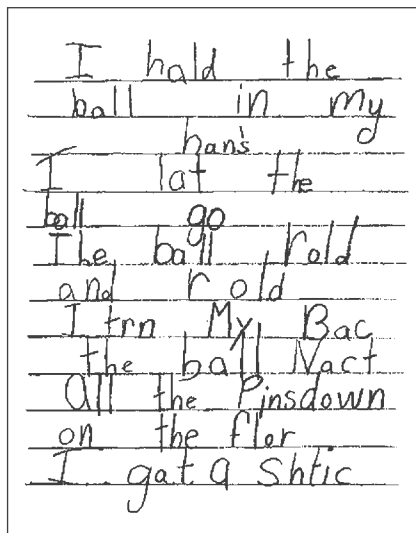 I hald the
ball in my
han's
I lat the
ball go
The ball rold
and rold
I trn My Bac
the ball Nact
All the Pinsdown
on the flor
I gat a Shtic